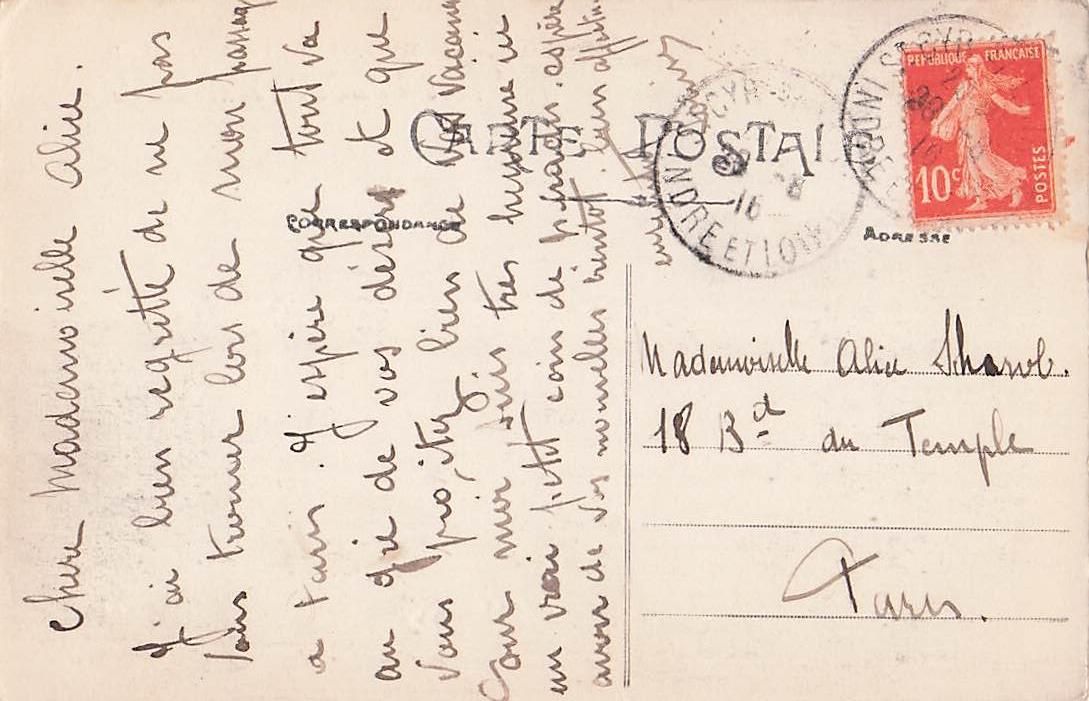 CARTE POSTALE
CORRESPONDANCE
ADRESSE
RÉPUBLIQUE FRANÇAISE
10c
POSTES
INDRE ET LOIRE
16
Chère Mademoiselle Alice.
J'ai bien regretté de ne pas
vous trouver lors de mon passage
à Paris. J'espère que tout va
au gré de vos désirs et que
vous profitez bien de vos vacances
Pour moi suis très heureuse ici
un vrai petit coin de paradis. espère
avoir de vos nouvelles bientôt.
Mademoiselle Alice
18 Bd du Temple
Paris.